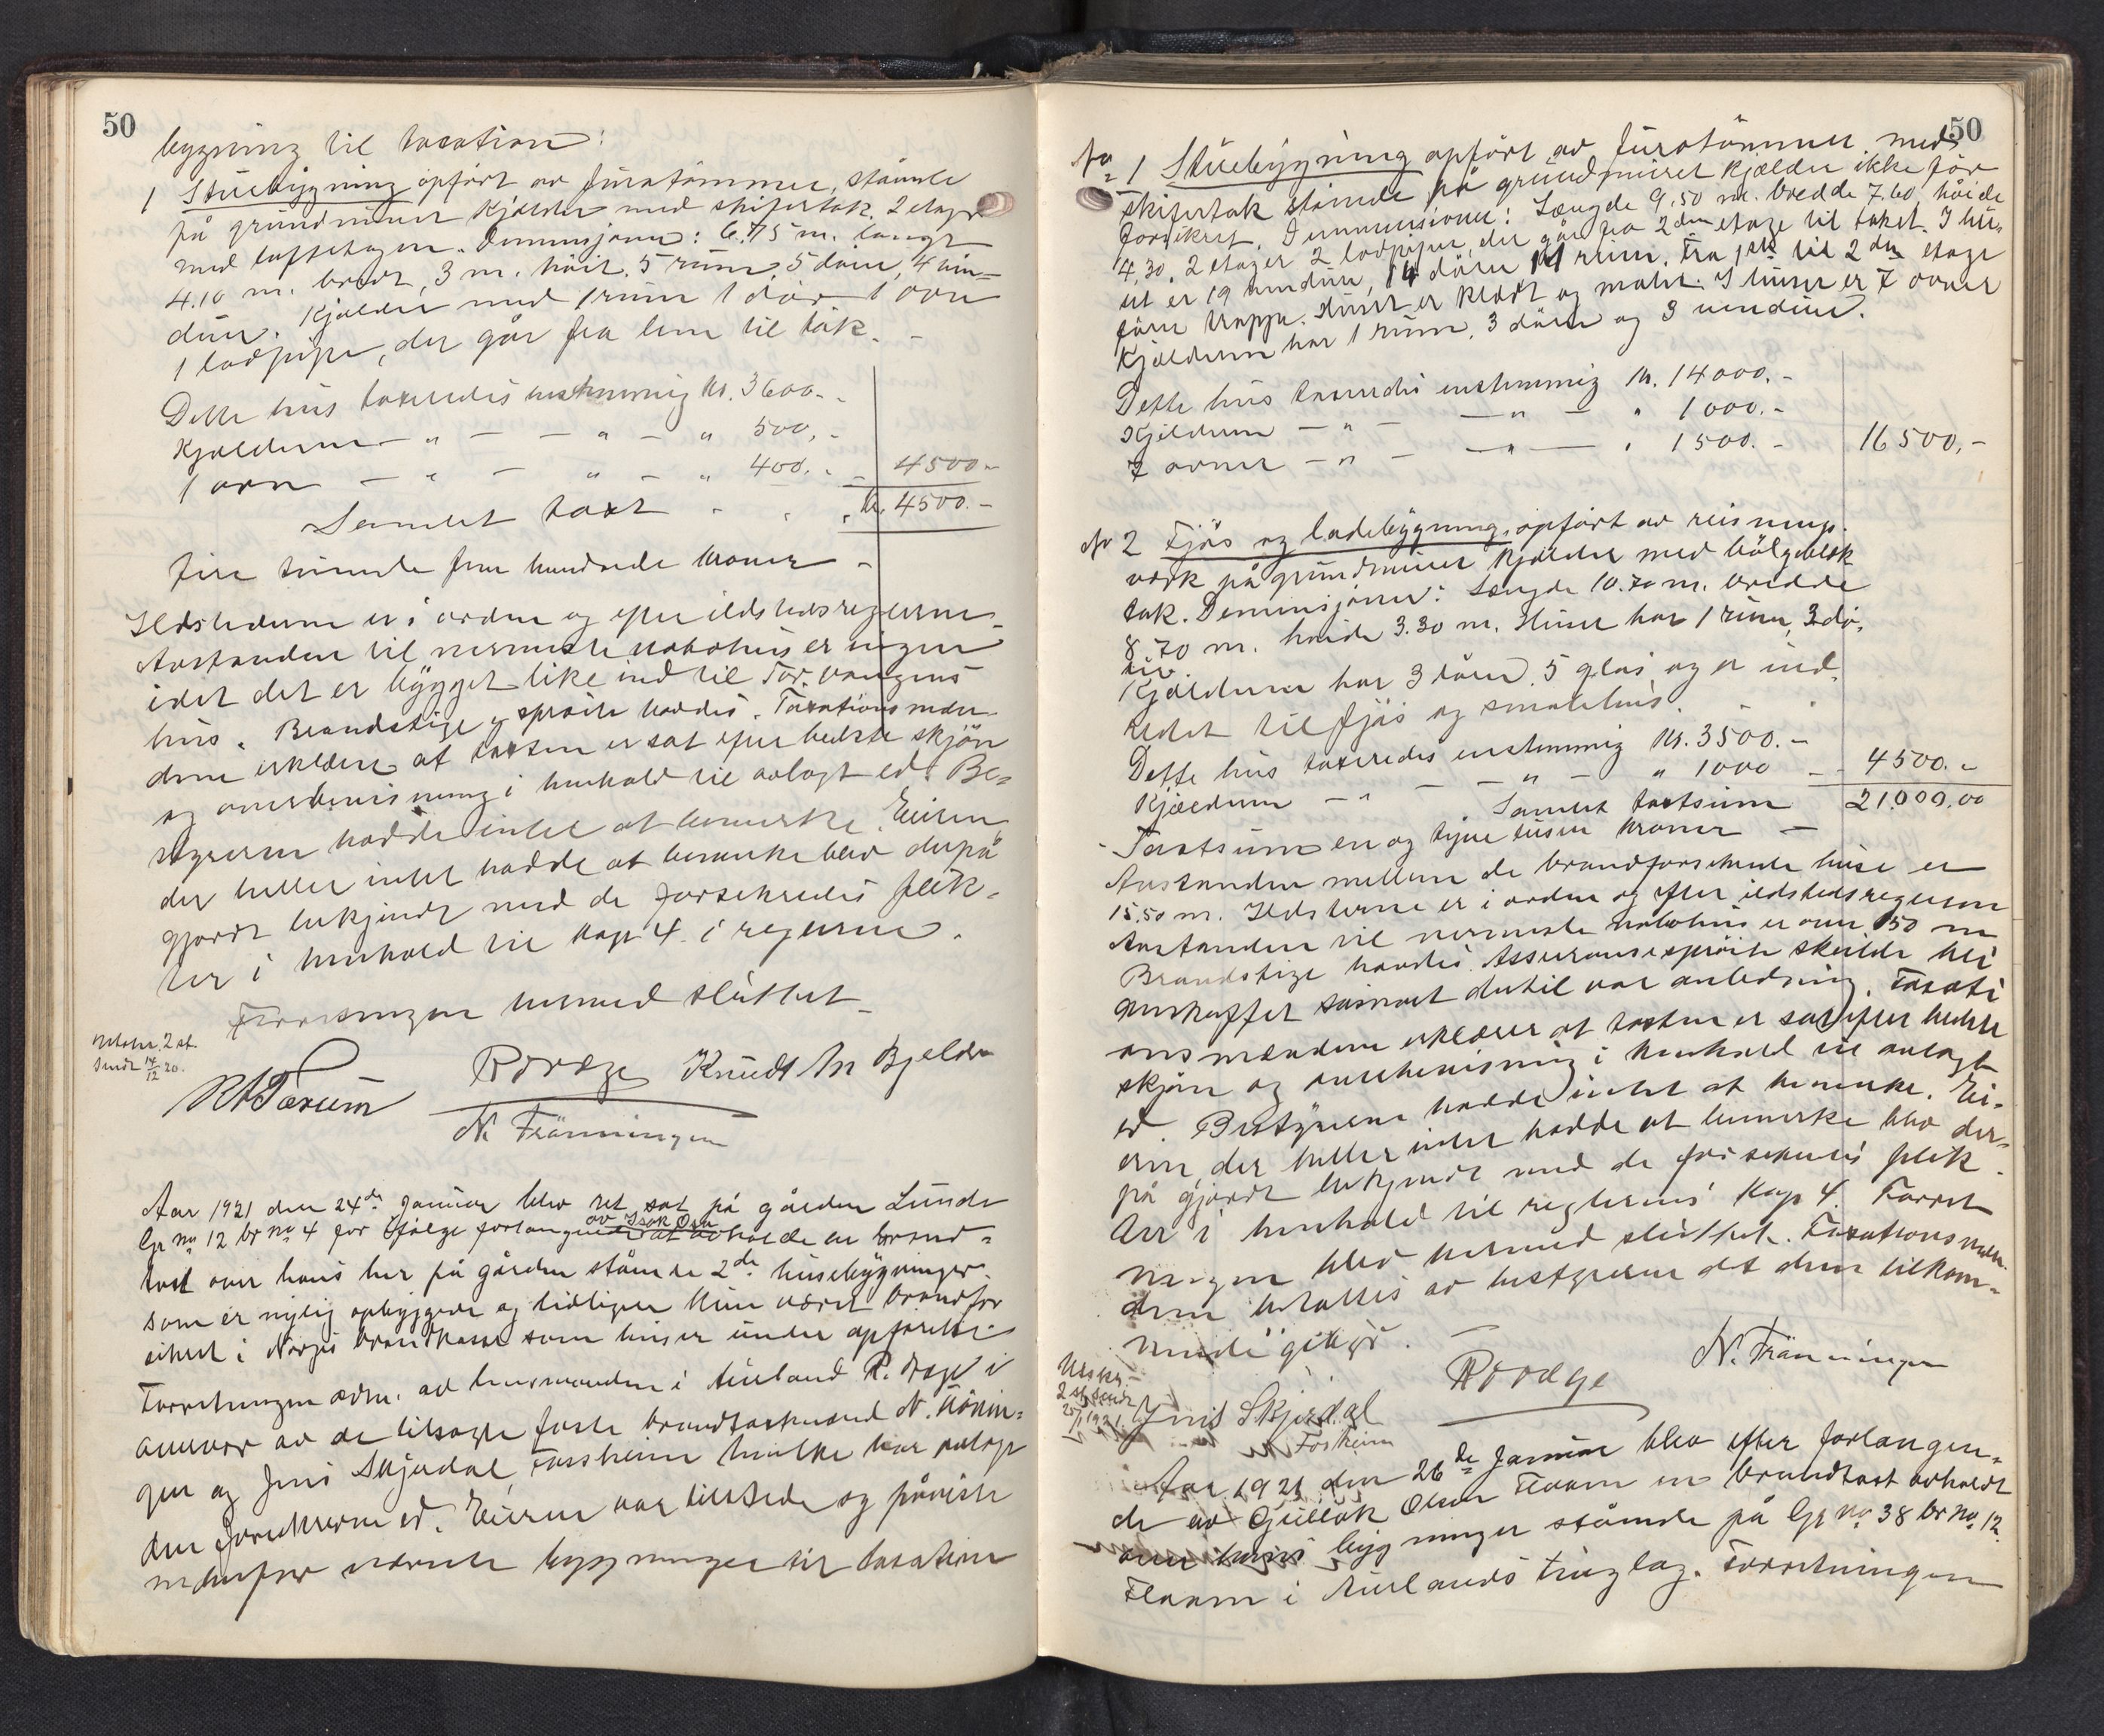 50
bygning til taxation:
1 Stuebygning opført av furutømmer, stående
på grundmuret kjælder med skifertak. 2 etager
med loftetagen. Demmisjoner: 6.75 m. langt
4.10 m. bredt, 3 m. høit. 5 rum, 5 døre, 4 vin-
duer. Kjælder med 1 rum 1 dør 1 ovn
1 lodpipe, der går fra lem til tak.
Dette hus taxeredes enstemmig kr. 3600.-
Kjælderen - " - - " - " 500,-
1 ovn - " - " - " 400.- - 4500.-
Samlet taxt kr. 4500.-
fire tusinde fem hundrede kroner -
Ildstederne er i orden og efter ildstedsreglerne.
Avstanden til nermeste nabohus er ingen
idet det er bygget like ind til Tor. Vangens
hus. Brandstige og sprøite haddes. Taxationsmæn-
dene erklærer at taxten er sat efter bedste skjøn
og overbevisning i henhold til avlagt ed. Be-
styreren hadde intet at bemerke. Eieren
der heller intet hadde at bemerke blev derpå
gjordt bekjendt med de forsikredes plik-
ter i henhold til kap 4 i reglerne.
Forretningen hermed sluttet
2 st.
sendt 14/12 20.
R Hægg Knudt An Bjelde
N. Frønningen
Aar 1921 den 24de Januar blev ret sat på gården Lunde
Gr no 12 br no 4 for ifølge forlangende at avholde en brand-
av Isak Osa
taxt over hans her på gården stående 2de husebygninger
som er nylig opbyggede og tidligere kun været brandfor
sikret i Norges brandkasse som huser under opførelse
Forretningen adm. av lensmanden i Aurland R. Hægg i
overvær av de tilsagte faste brandtaxtmænd N. Frønnin-
gen og Jens Skjerdal, Fossheim hvilke har avlagt
den foreskrevne ed. Eieren var tilstede og påviste
nedenfor nævnte bygninger til taxation
50
No 1 Stuebygning opført av furutømmer med
skifertak stående på grundmuret kjælder ikke før
forsikret. Demmensioner: Længde 9,50 m. bredde 7.60 høide
4,30. 2 etager 2 lodpiper, der går fra 2den etage til taket. I hu-
set er 19 vinduer, 14 dører 11 rum. Fra 1ste til 2den etage
fører trappe. Huset er klædt og malet. I huset er 7 ovner
Kjælderen har 1 rum, 3 dører og 3 vinduer.
Dette hus taxeredes enstemmig kr. 14000.-
Kjelderen - " - - " - " 1000.-
7 ovner - " - - " - " 1500.- 16500,-
No 2 Fjøs og ladebygning, opført av reisning-
verk på grundmuret kjælder med bølgeblek
tak. Demensjoner: Længde 10.70 m. bredde
8,70 m. høide 3.30 m. Huset har 1 rum, 3 dø-
rer
Kjælderen har 3 døre, 5 glas, og er ind-
redet til fjøs og smalehus.
Dette hus taxeredes enstemmig kr. 3500.-
Kjælderen - " - - " - " 1000 - 4500.-
Samlet taxtsum 21.000.00
Taxtsum en og tyve tusen kroner -
Avstanden mellem de brandforsikrede huse er
15.50 m. Ildstederne er i orden og efter ildstedsreglerne
Avstanden til nermeste nabohus er over 150 m
Brandstige havdes. Assuransesprøite skulde bli
anskaffet såsnart dertil var anledning. Taxati
onsmændene erklærer at taxten er sat efter bedste
skjøn og overbevisning i henhold til avlagt
ed. Bestyreren hadde intet at bemerke. Ei-
eren, der heller intet hadde at bemerke blev der-
på gjordt bekjendt med de forsikredes plik-
ter i henhold til reglernes Kap 4. Forret
ningen blev hermed sluttet. Taxationsmæn-
dene betaltes av bestyreren det dem tilkom-
mende gebyr.
2 st. sendt
25/1 1921.
R Hægg N. Frønningen
Jens Skjerdal
Fosheim
Aar 1921 den 26de Januar blev efter forlangen-
de av Gullak Olsen Flaam en brandtaxt avholdt
over hans bygninger stående på Gr no 38 br no 12
Flaam i Aurlands tinglag. Forretningen